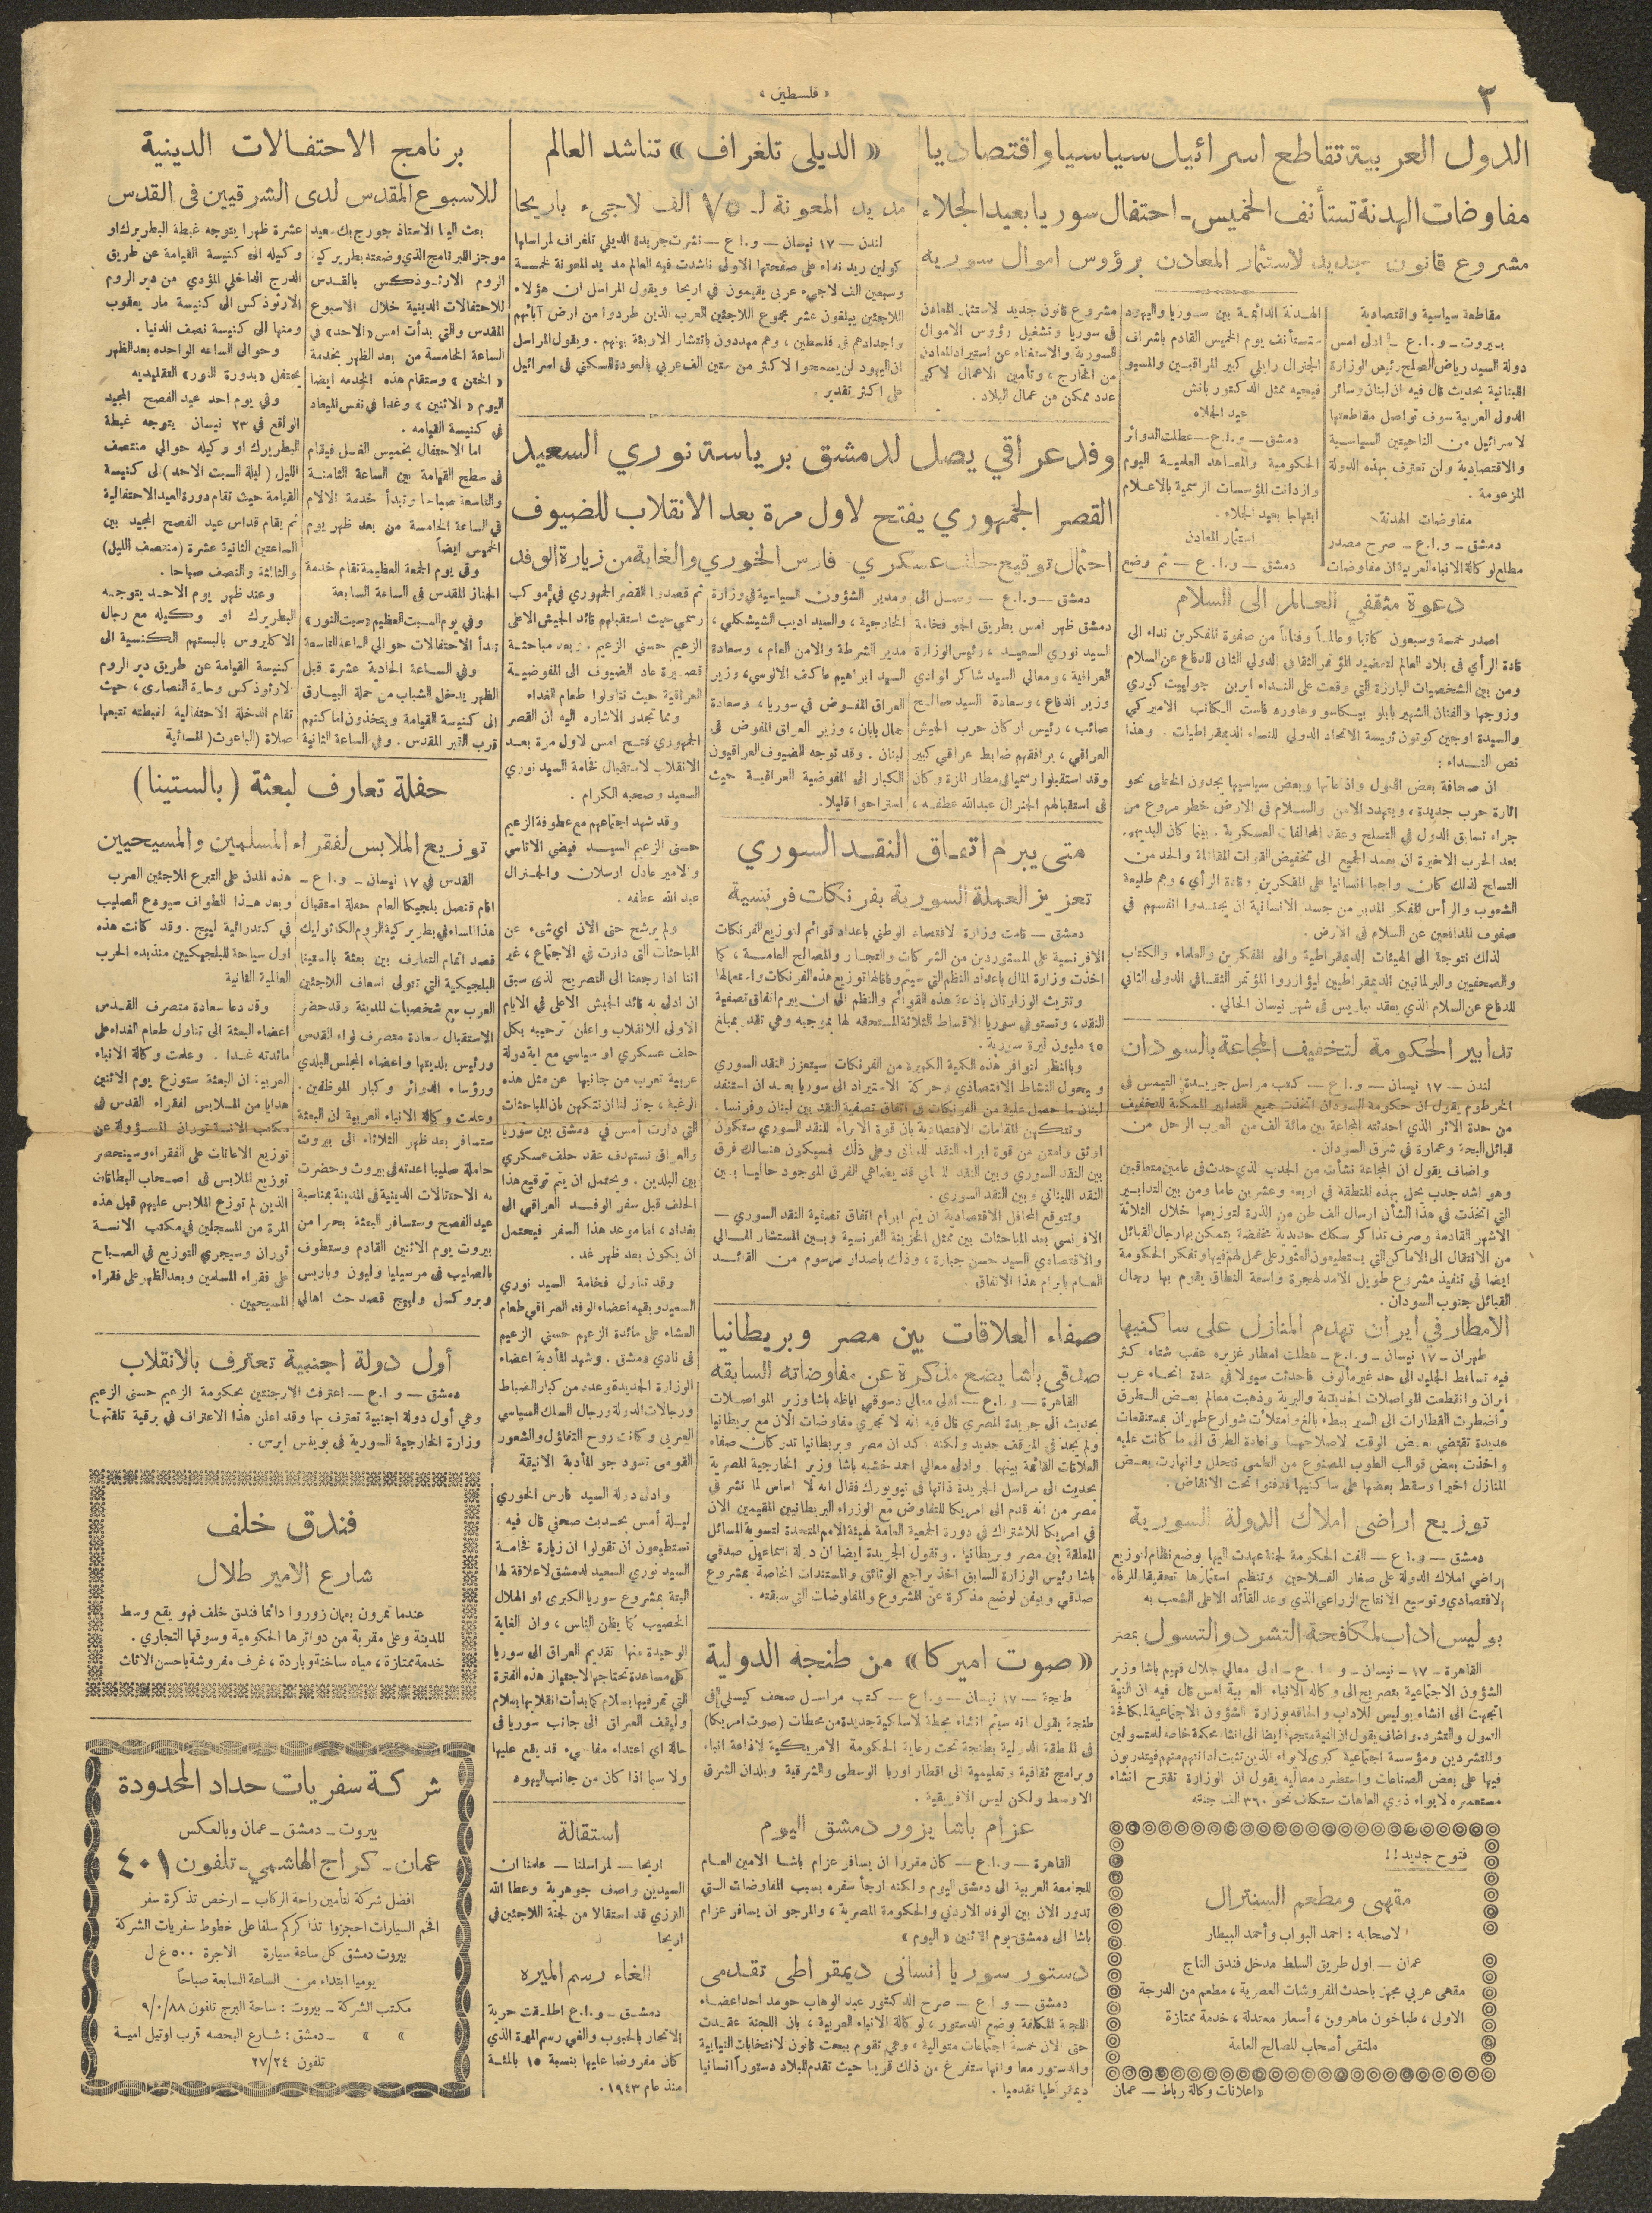 « فلسطين »
٣
الدول العربية تقاطع اسرائيل سياسيا واقتصاديا
مفاوضات الهدنة تستأنف الخميس - احتفال سوريا بعيد الجلاء
مشروع قانون جديد لاستثمار المعادن برؤوس اموال سورية
مقاطعة سياسية واقتصادية
بيروت - و.ا.ع - ادلى امس
دولة السيد رياض الصلح رئيس الوزارة
اللبنانية بحديث قال فيه ان لبنان وسائر
الدول العربية سوف تواصل مقاطعتها
لاسرائيل من الناحيتين السياسية
والاقتصادية ولن تعترف بهذه الدولة
المزعومة .
مفاوضات الهدنة
دمشق - و.ا.ع - صرح مصدر
مطلع لوكالة الانباء العربية ان مفاوضات
الهدنة الدائمة بين سوريا واليهود
ستستأنف يوم الخميس القادم باشراف
الجنرال رايلي كبير المراقبين والمسيو
فيجيه ممثل الدكتور بانش
عيد الجلاء
دمشق - و.ا.ع - عطلت الدوائر
الحكومية والمعاهد العلمية اليوم
وازدانت المؤسسات الرسمية بالاعلام
ابتهاجا بعيد الجلاء .
استثمار المعادن
دمشق - و.ا.ع - تم وضع
مشروع قانون جديد لاستثمار المعادن
في سوريا وتشغيل رؤوس الاموال
السورية والاستغناء عن استيراد المعادن
من الخارج ، وتأمين الاعمال لاكبر
عدد ممكن من عمال البلاد .
« الديلي تلغراف » تناشد العالم
مد يد المعونة لـ ٧٥ الف لاجىء باريحا
لندن - ١٧ نيسان - و.ا.ع - نشرت جريدة الديلي تلغراف لمراسلها
كولين ريد نداء على صفحتها الاولى ناشدت فيه العالم مد يد المعونة لخمسة
وسبعين الف لاجىء عربي يقيمون في اريحا ويقول المراسل ان هؤلاء
اللاجئين يبلغون عشر مجموع اللاجئين العرب الذين طردوا من ارض آبائهم
واجدادهم في فلسطين ، وهم مهددون بانتشار الاوبئة بينهم . ويقول المراسل
ان اليهود لن يسمحوا لاكثر من ستين الف عربي بالعودة للسكنى في اسرائيل
على اكثر تقدير .
برنامج الاحتفالات الدينية
للاسبوع المقدس لدى الشرقيين في القدس
بعث الينا الاستاذ جورج بك سعيد
موجز البرنامج الذي وضعته بطريركية
الروم الارثوذكس بالقدس
للاحتفالات الدينية خلال الاسبوع
المقدس والتي بدأت امس «الاحد» في
الساعة الخامسة من بعد الظهر بخدمة
« الختن » وستقام هذه الخدمه ايضا
اليوم « الاثنين » وغدا في نفس الميعاد
في كنيسة القيامه .
اما الاحتفال بخميس الغسل فيقام
في سطح القيامة بين الساعة الثامنة
والتاسعة صباحا وتبدأ خدمة الالام
في الساعة الخامسة من بعد ظهر يوم
الخميس ايضاً
وفي يوم الجمعة العظيمة تقام خدمة
الجناز المقدس في الساعة السابعة
وفي يوم السبت العظيم «سبت النور»
تبدأ الاحتفالات حوالي الساعة التاسعة
وفي الساعة الحادية عشرة قبل
الظهر يدخل الشباب من حملة البيارق
الى كنيسة القيامة ويتخذون اماكنهم
قرب القبر المقدس . وفي الساعة الثانية
عشرة ظهرا يتوجه غبطة البطريرك او
وكيله الى كنيسة القيامة عن طريق
الدرج الداخلي المؤدي من دير الروم
الارثوذكس الى كنيسة مار يعقوب
ومنها الى كنيسة نصف الدنيا .
وحوالي الساعه الواحده بعد الظهر
يحتفل «بدورة النور» التقليديه
وفي يوم احد عيد الفصح المجيد
الواقع في ٢٣ نيسان يتوجه غبطة
البطريرك او وكيله حوالي منتصف
الليل ( ليلة السبت الاحد ) الى كنيسة
القيامة حيث تقام دورة العيد الاحتفالية
ثم يقام قداس عيد الفصح المجيد بين
الساعتين الثانية عشرة (منتصف الليل)
والثالثة والنصف صباحا .
وعند ظهر يوم الاحد يتوجه
البطريرك او وكيله مع رجال
الاكليروس بالبستهم الكنسية الى
كنيسة القيامة عن طريق دير الروم
لارثوذكس وحارة النصارى ، حيث
تقام الدخلة الاحتفالية لغبطته تتبعها
صلاة (الباعوث) المسائية
وفد عراقي يصل لدمشق برياسة نوري السعيد
القصر الجمهوري يفتح لاول مرة بعد الانقلاب للضيوف
احتمال توقيع حلف عسكري - فارس الخوري والغاية من زيارة الوفد
دمشق - و.ا.ع - وصل الى
دمشق ظهر امس بطريق الجو فخامة
السيد نوري السعيد ، رئيس الوزارة
العراقية ، ومعالي السيد شاكر الوادي
وزير الدفاع ، وسعادة السيد صالح
صائب ، رئيس اركان حرب الجيش
العراقي ، يرافقهم ضابط عراقي كبير
وقد استقبلوا رسميا في مطار المزة وكان
في استقبالهم الجنرال عبدالله عطفه ،
ومدير الشؤون السياسية في وزارة
الخارجية ، والسيد اديب الشيشكلي ،
مدير الشرطة والامن العام ، وسعادة
السيد ابراهيم عاكف الالوسي، وزير
العراق المفوض في سوريا ، وسعادة
جمال بابان ، وزير العراق المفوض في
لبنان . وقد توجه الضيوف العراقيون
الكبار الى المفوضية العراقية حيث
استراحوا قليلا.
ثم قصدوا القصر الجمهوري في موكب
رسمي حيث استقبلهم قائد الجيش الاعلى
الزعيم حسني الزعيم . وبعد مباحثة
قصيرة عاد الضيوف الى المفوضية
العراقية حيث تناولوا طعام الغداء
ومما تجدر الاشاره اليه ان القصر
الجمهوري فتح امس لاول مرة بعد
الانقلاب لاستقبال فخامة السيد نوري
السعيد وصحبه الكرام .
وقد شهد اجتماعهم مع عطوفة الزعيم
حسني الزعيم السيد فيضي الاتاسي
والامير عادل ارسلان والجنرال
عبد الله عطفه .
ولم يرشح حتى الان اي شيء عن
المباحثات التي دارت في الاجتماع ، غير
اننا اذا رجعنا الى التصريح لذي سبق
ان ادلى به قائد الجيش الاعلى في الايام
الاولى للانقلاب واعلن ترحيبه بكل
حلف عسكري او سياسي مع اية دولة
عربية تعرب من جانبها عن مثل هذه
الرغبة ، جاز لنا ان نتكهن بان المباحثات
التي دارت أمس في دمشق بين سوريا
والعراق تستهدف عقد حلف عسكري
بين البلدين . ويحتمل ان يتم توقيع هذا
الحلف قبل سفر الوفد العراقي الى
بغداد ، اما موعد هذا السفر فيحتمل
ان يكون بعد ظهر غد .
وقد تناول فخامة السيد نوري
السعيد وبقيه اعضاء الوفد العراقي طعام
العشاء على مائدة الزعيم حسني الزعيم
في نادي دمشق . وشهد المأدبة اعضاء
الوزارة الجديدة وعدد من كبار الضباط
ورجالات الدولة ورجال السلك السياسي
العربي وكانت روح التفاؤل والشعور
القومي تسود جو المأدبة الانيقة
وادلى دولة السيد فارس الخوري
ليلة أمس بحديث صحفي قال فيه :
تستطيعون ان تقولوا ان زيارة فخامة
السيد نوري السعيد لدمشق لا علاقة لها
البتة بمشروع سوريا الكبرى او الهلال
الخصيب كما يظن الناس ، وان الغاية
الوحيدة منها تقديم العراق الى سوريا
كل مساعدة تحتاجها لاجتياز هذه الفترة
التي تمر فيها بسلام كما بدأت انقلابها بسلام
وليقف العراق الى جانب سوريا في
حالة اي اعتداء مفاجىء قد يقع عليها
ولا سيما اذا كان من جانب اليهود
دعوة مثقفي العالم الى السلام
اصدر خمسة وسبعون كاتبا وعالماً وفناناً من صفوة المفكرين نداء الى
قادة الرأي في بلاد العالم لتعضيد المؤتمر الثقافي الدولي الثاني للدفاع عن السلام
ومن بين الشخصيات البارزة التي وقعت على النداء ايرين جولييت كوري
وزوجها والفنان الشهير بابلو بيكاسو وهاورد فاست الكاتب الاميركي
والسيدة اوجين كوتون رئيسة الاتحاد الدولي للنساء الديمقراطيات . وهذا
نص النداء :
ان صحافة بعض الدول واذعاتها وبعض سياسيها يجدون الخطى نحو
اثارة حرب جديدة ، ويتهدد الامن والسلام في الارض خطر مروع من
جراء تسابق الدول في التسلح وعقد المحالفات العسكرية . بينما كان البديهي،
بعد الحرب الاخيرة ان يعمد الجميع الى تخفيض القوات المقاتلة والحد من
التسلح لذلك كان واجبا انسانيا على المفكرين وقادة الرأي ، وهم طليعة
الشعوب والرأس المفكر المدبر من جسد الانسانية ان يجندوا انفسهم في
صفوف المدافعين عن السلام في الارض .
لذلك نتوجه الى الهيئات الديمقراطية والى المفكرين والعلماء والكتاب
والصحفيين والبرلمانيين الديمقراطيين ليؤازروا المؤتمر الثقافي الدولي الثاني
للدفاع عن السلام الذي يعقد بباريس في شهر نيسان الحالي .
تدابير الحكومة لتخفيف المجاعة بالسودان
لندن - ١٧ نيسان - و.ا.ع - كتب مراسل جريدة التيمس في
الخرطوم يقول ان حكومة السودان اتخذت جميع التدابير الممكنة لتخفيف
من حدة الاثر الذي احدثته المجاعة بين مائة الف من العرب الرحل من
قبائل البجة وعمارة في شرق السودان .
واضاف يقول ان المجاعة نشأت من الجدب الذي حدث في عامين متعاقبين
وهو اشد جدب يحل بهذه المنطقة في اربعة وعشرين عاما ومن بين التدابير
التي اتخذت في هذا الشأن ارسال الف طن من الذرة لتوزيعها خلال الثلاثة
الاشهر القادمة وصرف تذاكر سكك حديدية مخفضة يتمكن بها رجال القبائل
من الانتقال الى الاماكن التي يستطيعون العثور على عمل لهم فيها وتفكر الحكومة
ايضا في تنفيذ مشروع طويل الامد لهجرة واسعة النطاق يقوم بها رجال
القبائل جنوب السودان .
الامطار في ايران تهدم المنازل على ساكنيها
طهران - ١٧ نيسان - و.ا.ع - هطلت امطار غزيره عقب شتاء كثر
فيه تساقط الجليد الى حد غير مألوف فاحدثت سيولا في عدة انحاء غرب
ايران وانقطعت المواصلات الحديدية والبرية وذهبت معالم بعض الطرق
واضطرت القطارات الى السير ببطء بالغ وامتلأت شوارع طهران بمستنقعات
عديدة تقتضي بعض الوقت لاصلاحها واعادة الطرق الى ما كانت عليه
واخذت بعض قوالب الطوب المصنوع من الطمى تتحلل وانهارت بعض
المنازل اخيرا وسقط بعضها على ساكنيها فدفنوا تحت الانقاض .
توزيع اراضى املاك الدولة السورية
دمشق - و.ا.ع - الفت الحكومة لجنة عهدت اليها بوضع نظام لتوزيع
اراضي املاك الدولة على صغار الفلاحين وتنظيم استثمارها تحقيقا للرفاه
الاقتصادي وتوسيع الانتاج الزراعي الذي وعد القائد الاعلى الشعب به
بوليس اداب لمكافحة التشرد والتسول بمصر
القاهرة - ١٧ - نيسان - و.ا.ع - ادلى معالي جلال فهيم باشا وزير
الشؤون الاجتماعية بتصريح الى وكالة الانباء العربية امس قال فيه ان النية
اتجهت الى انشاء بوليس للاداب والحاقه بوزارة الشؤون الاجتماعية لمكافحة
التسول والتشرد. واضاف يقول ان النية متجهة ايضا الى انشاء محكمة خاصه للمتسولين
والمتشردين ومؤسسة اجتماعية كبرى لايواء الذين تثبت ادانتهم منهم فيتدربون
فيها على بعض الصناعات واستطرد معاليه يقول ان الوزارة تقترح انشاء
مستعمره لايواء ذوي العاهات ستكلف نحو ٣٦٠ الف جنيه
متى يبرم اتفاق النقد السوري
تعزيز العملة السورية بفرنكات فرنسية
دمشق - قامت وزارة الاقتصاد الوطني باعداد قوائم لتوزيع الفرنكات
الافرنسية على المستوردين من الشركات والتجار والمصالح العامة ، كما
اخذت وزارة المال باعداد النظم التي سيتم وفقا لها توزيع هذه الفرنكات واستعمالها
وتتريث الوزارتان باذاعة هذه القوائم والنظم الى ان يبرم اتفاق تصفية
النقد ، وتستوفي سوريا الاقساط الثلاثة المستحقه لها بموجبه وهي تقدر بمبلغ
٤٥ مليون ليرة سورية .
وبالنظر لتوافر هذه الكمية الكبيرة من الفرنكات سيتعزز النقد السوري
ويتحول النشاط الاقتصادي وحركة الاستيراد الى سوريا بعد ان استنفد
لبنان ما حصل عليه من الفرنكات في اتفاق تصفية النقد بين لبنان وفرنسا .
وتتكهن المقامات الاقتصادية بان قوة الابراء للنقد السوري ستكون
اوثق وامتن من قوة ابراء النقد اللبناني وعلى ذلك فسيكون هنالك فرق
بين النقد السوري وبين النقد اللبناني قد يضاهي الفرق الموجود حاليا بين
النقد اللبناني وبين النقد السوري .
وتتوقع المحافل الاقتصادية ان يتم ابرام اتفاق تصفية النقد السوري -
الافرنسي بعد المباحثات بين ممثل الخزينة الفرنسية وبين المستشار المالي
والاقتصادي السيد حسن جبارة ، وذلك باصدار مرسوم من القائد
العام بابرام هذا الاتفاق .
صفاء العلاقات بين مصر وبريطانيا
صدقي باشا يضع مذكرة عن مفاوضاته السابقه
القاهرة - و.ا.ع - ادلى معالي دسوقي اباظه باشا وزير المواصلات
بحديث الى جريدة المصري قال فيه انه لا تجري مفاوضات الان مع بريطانيا
ولم يجد في الموقف جديد ولكنه اكد ان مصر وبريطانيا تدركان صفاء
العلاقات القائمة بينهما . وادلى معالي احمد خشبه باشا وزير الخارجية المصرية
بحديث الى مراسل الجريدة ذاتها في نيويورك فقال انه لا اساس لما نشر في
مصر من انه قدم الى امريكا للتفاوض مع الوزراء البريطانيين المقيمين الان
في امريكا للاشتراك في دورة الجمعية العامة لهيئة الامم المتحدة لتسوية المسائل
المعلقة بين مصر وبريطانيا . وتقول الجريدة ايضا ان دولة اسماعيل صدقي
باشا رئيس الوزارة السابق اخذ يراجع الوثائق والمستندات الخاصة بمشروع
صدقي وبيفن لوضع مذكرة عن المشروع والمفاوضات التي سبقته .
« صوت اميركا » من طنجه الدولية
طنجة - ١٧ نيسان - و.ا.ع - كتب مراسل صحف كيسلي في
طنجة يقول انه سيتم انشاء محطة لاسلكية جديدة من محطات (صوت امريكا)
في المنطقة الدولية بطنجة تحت رعاية الحكومة الامريكية لاذاعة انباء
وبرامج ثقافية وتعليمية الى اقطار اوربا الوسطى والشرقية وبلدان الشرق
الاوسط ولكن ليس الافريقية .
عزام باشا يزور دمشق اليوم
القاهرة - و.ا.ع - كان مقررا ان يسافر عزام باشا الامين العام
للجامعة العربية الى دمشق اليوم ولكنه ارجأ سفره بسبب المفاوضات التي
تدور الان بين الوفد الاردني والحكومة المصرية ، والمرجو ان يسافر عزام
باشا الى دمشق يوم الاثنين « اليوم »
دستور سوريا انساني ديمقراطي تقدمي
دمشق - و.ا.ع - صرح الدكتور عبد الوهاب حومد احد اعضاء
اللجنة المكلفة بوضع الدستور ، لوكالة الانباء العربية ، بان اللجنة عقدت
حتى الان خمسة اجتماعات متوالية ، وهي تقوم ببحث قانون لانتخابات النيابية
والدستور معا وانها ستفرغ من ذلك قريبا حيث تقدم للبلاد دستوراً انسانيا
ديمقراطيا تقدميا .
حفلة تعارف لبعثة (بالستينا)
توزيع الملابس لفقراء المسلمين والمسيحيين
القدس في ١٧ نيسان - و.ا.ع -
اقام قنصل بلجيكا العام حفلة استقبال
هذا المساء في بطريركية الروم الكاثوليك
قصد اتمام التعارف بين بعثة بالستينا
البلجيكية التي تتولى اسعاف اللاجئين
العرب مع شخصيات المدينة وقد حضر
الاستقبال سعادة متصرف لواء القدس
ورئيس بلديتها واعضاء المجلس البلدي
ورؤساء الدوائر وكبار الموظفين .
وعلمت وكالة الانباء العربية ان البعثة
ستسافر بعد ظهر الثلاثاء الى بيروت
حاملة صليبا اعدته في بيروت وحضرت
به الاحتفالات الدينية في المدينة بمناسبة
عيد الفصح وستسافر البعثة بحرا من
بيروت يوم الاثنين القادم وستطوف
بالصليب في مرسيليا وليون وباريس
وبروكسل ولييج قصد حث اهالي
هذه المدن على التبرع للاجئين العرب
وبعد هذا الطواف سيودع الصليب
في كتدرائية لييج . وقد كانت هذه
اول سياحة للبلجيكيين منذ بدء الحرب
العالمية الثانية
وقد دعا سعادة متصرف القدس
اعضاء البعثة الى تناول طعام الغداء على
مائدته غدا . وعلمت وكالة الانباء
العربية ان البعثة ستوزع يوم الاثنين
هدايا من الملابس لفقراء القدس في
مكتب الانسة توران المسؤولة عن
توزيع الاعانات على الفقراء وسينحصر
توزيع الملابس في اصحاب البطاقات
الذين لم توزع الملابس عليهم قبل هذه
المرة من المسجلين في مكتب الانسة
توران وسيجري التوزيع في الصباح
على فقراء المسلمين وبعد الظهر على فقراء
المسيحيين .
أول دولة اجنبية تعترف بالانقلاب
دمشق - و.ا.ع - اعترفت الارجنتين بحكومة الزعيم حسني الزعيم
وهي أول دولة اجنبية تعترف بها وقد اعلن هذا الاعتراف في برقية تلقتها
وزارة الخارجية السورية في بوينس ايرس .
فندق خلف
شارع الامير طلال
عندما تمرون بعمان زوروا دائما فندق خلف فهو يقع وسط
المدينة وعلى مقربة من دوائرها الحكومية وسوقها التجاري .
خدمة ممتازة ، مياه ساخنة وباردة ، غرف مفروشة باحسن الاثاث
شركة سفريات حداد المحدودة
بيروت - دمشق - عمان وبالعكس
عمان - كراج الهاشمي - تلفون ٤٠١
افضل شركة لتأمين راحة الركاب - ارخص تذكرة سفر
افخم السيارات احجزوا تذاكركم سلفا على خطوط سفريات الشركة
بيروت دمشق كل ساعة سيارة الاجرة ٥٠٠ غ ل
يوميا ابتداء من الساعة السابعة صباحاً
مكتب الشركة - بيروت : ساحة البرج تلفون ٩/٠/٨٨
» » - دمشق : شارع البحصه قرب اوتيل امية
تلفون ٢٧/٢٤
استقالة
اريحا - لمراسلنا - علمنا ان
السيدين واصف جوهرية وعطا الله
الترزي قد استقالا من لجنة اللاجئين في
اريحا
الغاء رسم الميره
دمشق - و.ا.ع اطلقت حرية
الاتجار بالحبوب والغي رسم الميرة الذي
كان مفروضا عليها بنسبة ١٥ بالمئة
منذ عام ١٩٤٣.
فتوح جديد !!
مقهى ومطعم السنترال
لاصحابه : احمد البواب وأحمد البيطار
عمان - اول طريق السلط مدخل فندق التاج
مقهى عربي مجهز باحدث المفروشات العصرية ، مطعم من الدرجة
الاولى ، طباخون ماهرون ، أسعار معتدلة ، خدمة ممتازة
ملتقى أصحاب المصالح العامة
«اعلانات وكالة رباط - عمان